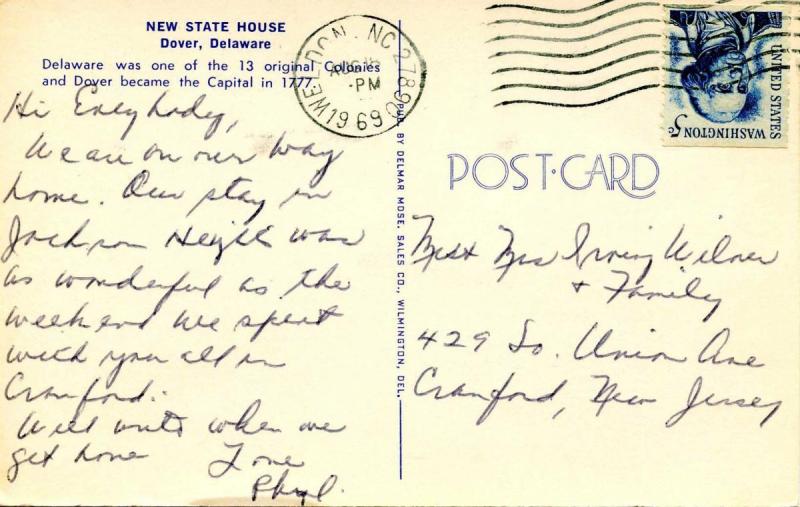 NEW STATE HOUSE
Dover, Delaware
Delaware was one of the 13 original Colonies
and Dover became the Capital in 1777.
Hi Everybody,
We are on our way
home. Our stay in
Jackson Heights was
as wonderful as the
weekend we spent
with you all in
Cranford.
Will write when we
get home Love
Phyl.
PUB. BY DELMAR MDSE. SALES CO., WILMINGTON, DEL.
WELDON, NC 27890
AUG
PM
1969
UNITED STATES
WASHINGTON 5c
POST-CARD
Mr & Mrs Irving Wilner
+ Family
429 So. Union Ave
Cranford, New Jersey